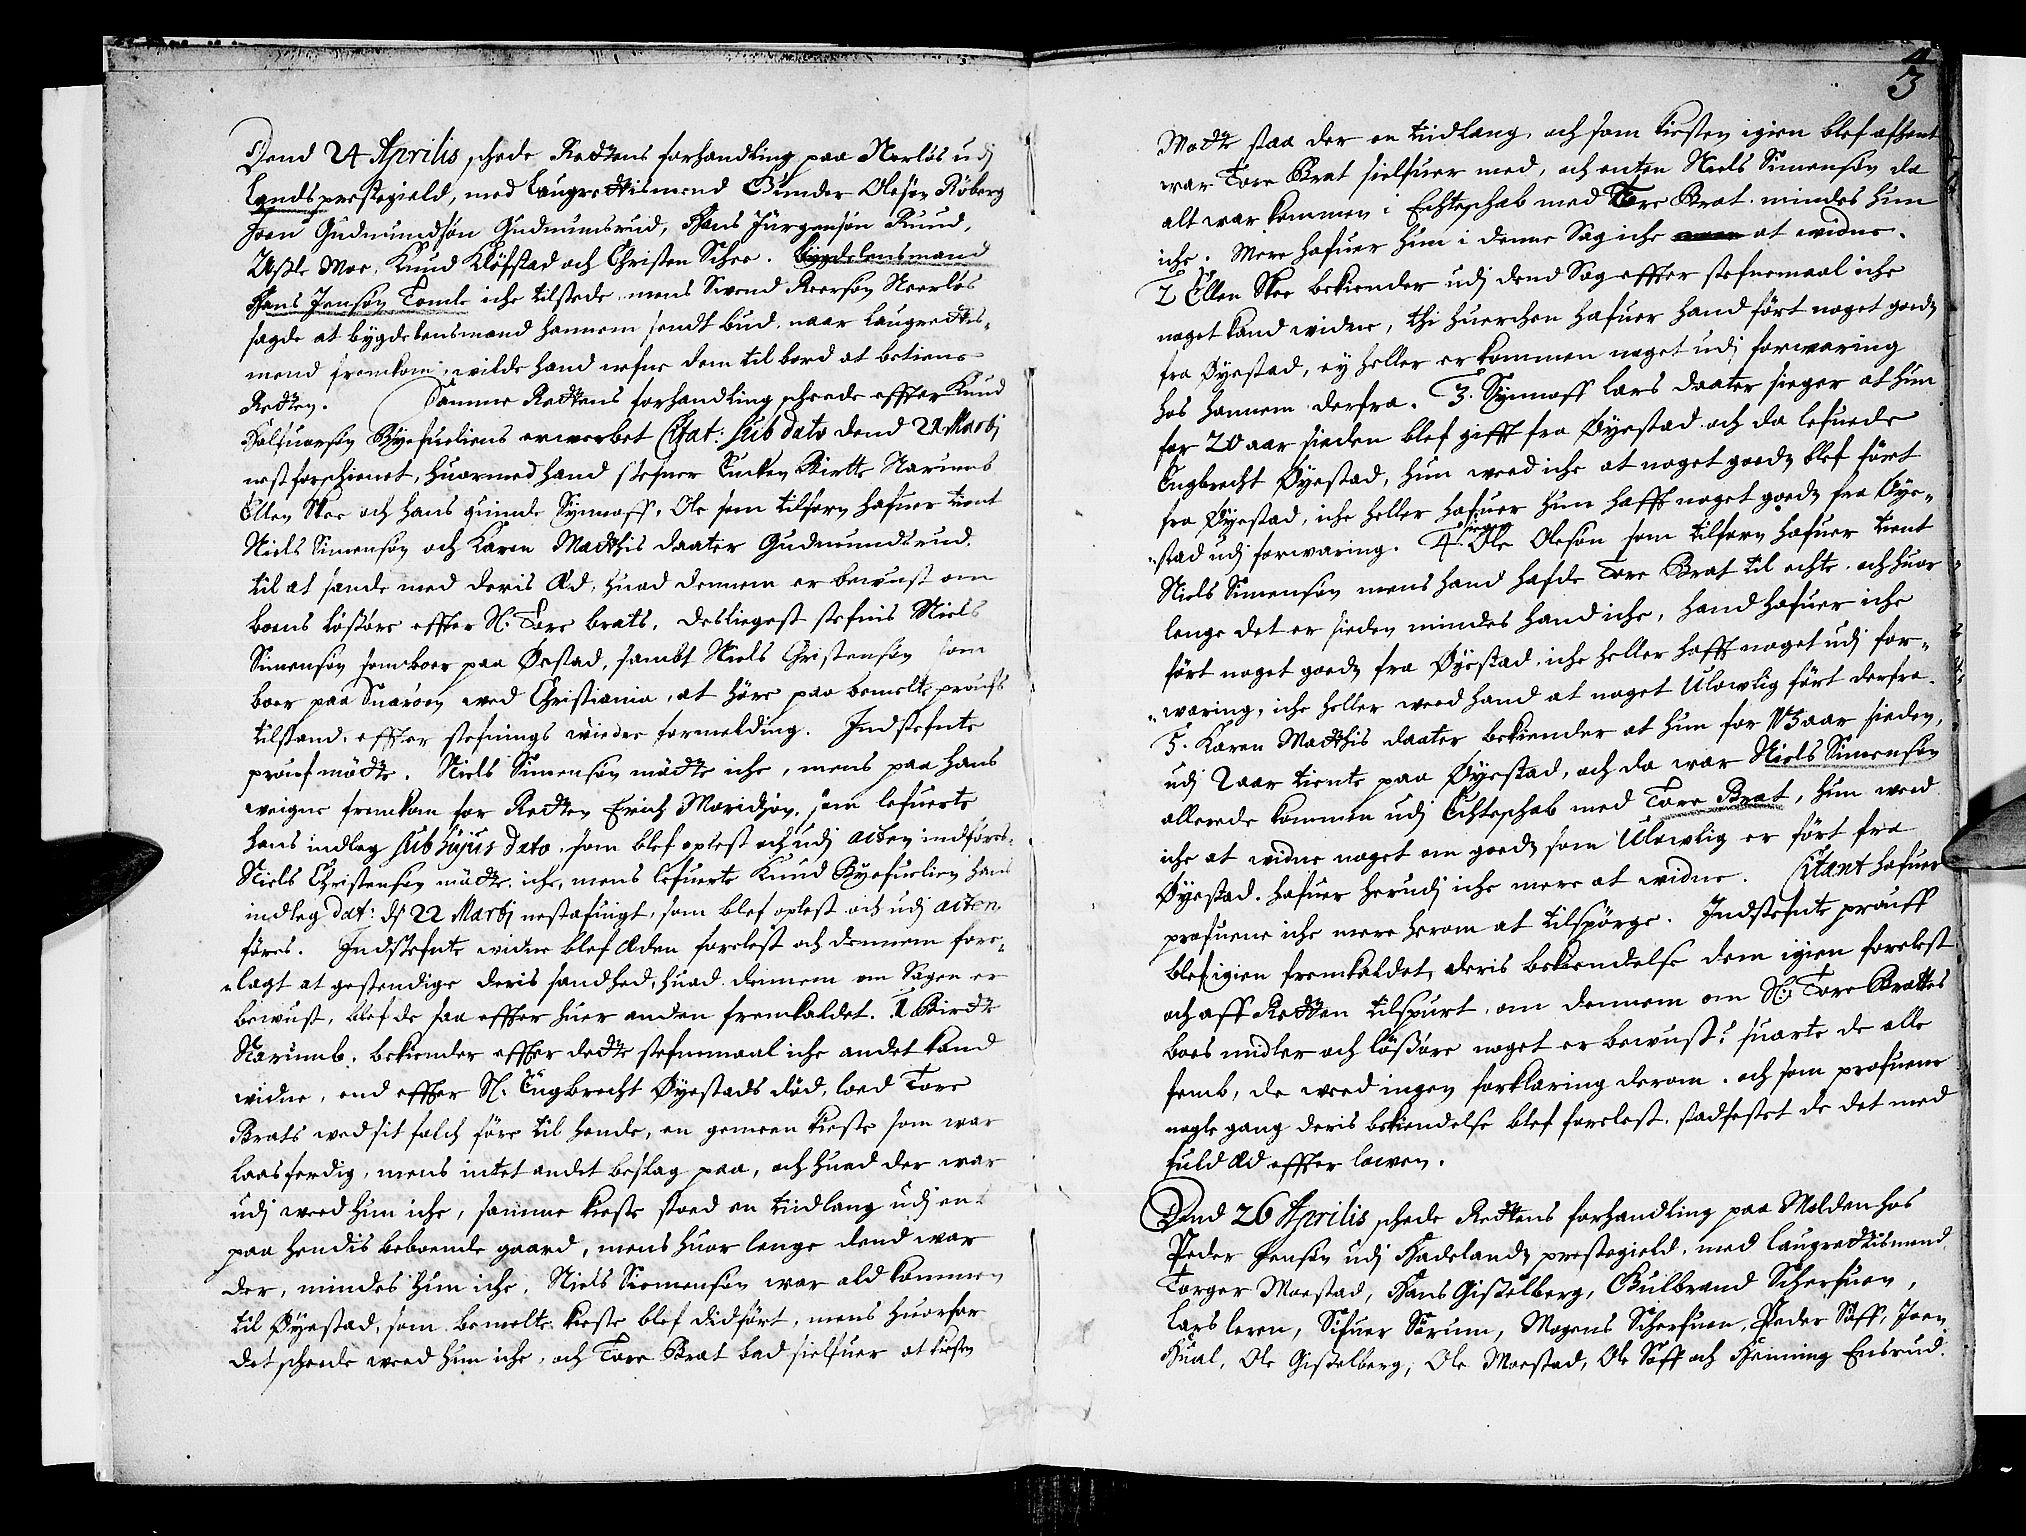 Dend 24 Aprilis schede Rettens forhandling paa Nerløs udj
Lands prestegield, med Laugrettismend Gunder Olesøn Røberg
Joen Gudmundsøn Gudmunsrud, Hans Jürgensøn Ruud,
Aslle Moe, Knud Kløfstad och Christen Schee. bygdelensmand
Hans Jensøn Tomle iche tilstede, mens Swend Reersøn Neerløs
sagde at bygdelensmand hannem sendt bud, naar Laugrettis-
mend fremkom, wilde hand nefne dem til bord at betiene
Retten. Samme Rettens forhandling scheede effter Knud
Halfuorsøn Byefueliens erwerbet Citat: sub dato dend 22 Martj
nestforschienet, huormed hand stefner Encken Birtte Narumb
Ellen Skee och hans quinde Synnoff, Ole som tilforn hafuer tient
Niels Simensøn och Karen Matthis daater Gudmundsrud.
til at sande med deris Æd, huad dennem er bewust om
boens løsøre effter Sl. Tore brats, desliegest stefnis Niels
Simensøn som boer paa Øestad, sambt Niels Christensøn som
boer paa Snarøen wed Christiania, at høre paa bemelte proufs
tilstand, effter stefnings wiedre formelding. Indstefnte
prouf mødte. Niels Simensøn mødte iche, mens paa hans
weigne fremkom for Retten Erich Moridsøn, som lefuerte
hans indlag sub hujus dato, som blef oplest och udj acten indføres.
Niels Christensøn mødte iche, mens lefuerte Knud Byefuelien hans
indleg dat: ds 22 Martj nestafuigt, som blef oplest och udj acten
føres. Indstefnte widne blef Æden forelest och dennem fore-
lagt at gestendige deris sandhed, huad dennem om Sagen er
bewust, blef de saa effter huer anden fremkaldet. 1 Birdte
Narumb. bekiender effter dette stefnemaal iche andet kand
widne, end effter Sl. Engbrecht Øyestads død, loed Tore
Brats wed sit folch føre til hende, en gemeen kieste som war
laasferdig, mens intet andet beslag paa, och huad der war
udj weed hun iche, samme kieste stoed en tiidlang udj en
paa hendis beboende gaard, mens huor lenge dend war
der, mindes hun iche. Niels Siemensøn war ald kommen
til Øyestad, som bemelte kieste blef didført, mens huorfor
det scheede weed hun iche, och Tore Brat bad sielfuer at kiesten
3
Motte staa der en tiidlang, och som kiesten igien blef afhent
war Tore Brat sielfuer med, och enten Niels Simensøn da
alt war kommen i Echteschab med Tore Brat mindes hun
iche. Mere hafuer hun i denne Sag iche at widne.
2 Ellen Skee bekiender udj dend Sag effter stefnemaal iche
noget kand widne, thi huerchen hafuer hand ført noget goeds
fra Øyestad, ey heller er kommen noget udj forwaring
hos hannem derfra. 3. Synnoff Lars daater sieger at hun
for 20 aar sieden blef gifft fra Øyestad och da lefuede
Engbrecht Øyestad, hun weed iche at noget goeds blef ført
fra Øyestad, iche heller hafuer hun hafft noget goeds fra Øye-
stad udj forwaring. 4. Ole Olesøn sieger som tilforn hafuer tient
Niels Simensøn mens hand hafde Tore Brat til echte, och huor
lenge det er sieden mindes hand iche, hand hafuer iche
ført noget goeds fra Øyestad, iche heller hafft noget udj for-
waring, iche heller weed hand at noget Ulowlig ført derfra.
5. Karen Matthis daater bekiender at hun for 13 aar sieden,
udj 2 aar tiente paa Øyestad, och da war Niels Simensøn
allerede kommen udj Echteschab med Tore Brat, hun weed
iche at widne noget om goeds som Ulowlig er ført fra
Øyestad. hafuer herudj iche mere at widne. Citant hafuer
profuene iche mere herom at tilspørge. Indstefnte prouff
blef igien fremkaldet, deris bekiendelse dem igien forelest
och aff Retten tilspurt, om dennem om Sl: Tore Brattes
boes midler och løsøre noget er bewust? suarte de alle
femb, de weed ingen forklaring derom. och som profuene
nogle gang deris bekiendelse blef forelest, stadfestet de det med
fuld Æd effter lowen.
Dend 26 Aprilis schede Rettens forhandling paa Molden hos
Peder Jensøn udj Hadelands prestegield, med Laugrettismend
Torger Moestad, Hans Gisselberg, Gulbrand Scherfuen,
Lars Leren, Sifuer Sørum, Mogens Scherfuen, Peder Søff, Joen
Hual, Ole Gisselberg, Ole Moestad, Ole Søff och Henning Ensrud.